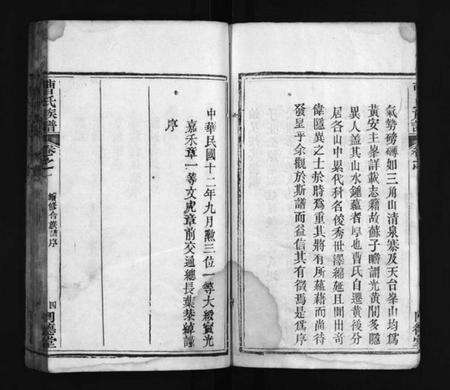 氣勢磅礴如三角山清泉寨及天台峯山均爲
黃安主峯詳載志籍故蘇子瞻謂光黃間多隱
異人蓋其山水鍾蘊者厚也曹氏自遷黃後分
居各山中累代科名俊秀世澤綿延且間出奇
偉隱異之士於時爲重其將有所蘊藉而尚待
發皇乎余觀於斯譜而益信其有徵焉是爲序
中華民國十二年九月勳三位一等大綬寶光
嘉禾章一等文虎章前交通總長葉恭綽謹
序
曹氏族譜
卷之一
續修合族譜序
四